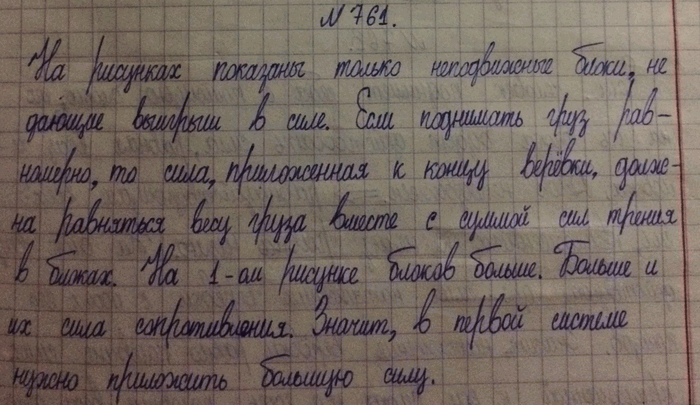 № 761.
На рисунках показаны только неподвижные блоки, не
дающие выигрыш в силе. Если поднимать груз рав-
номерно, то сила, приложенная к концу верёвки, долж-
на равняться весу груза вместе с суммой сил трения
в блоках. На 1-ом рисунке блоков больше. Больше и
их сила сопротивления. Значит, в первой системе
нужно приложить большую силу.